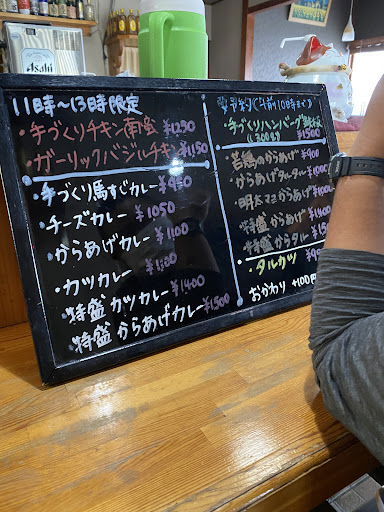 Asahi
11時〜13時限定
・手づくりチキン南蛮 ¥1250
・ガーリックバジルチキン ¥1150
・手づくり馬すじカレー ¥950
・チーズカレー ¥1050
・からあげカレー ¥1100
・カツカレー ¥1200
・特盛 カツカレー ¥1400
・特盛 からあげカレー ¥1500
予約(午前10時まで)
・手づくりハンバーグ
(300g) ¥1500
・若鶏のからあげ ¥900
・からあげタルタル
・明太マヨからあげ
・特盛 からあげ ¥1400
・特盛 からタル
・タルカツ
おかわり +100円